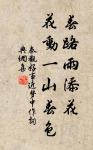 春路雨添花
花動一山春色
秦觀好事近夢中作詞
典網集